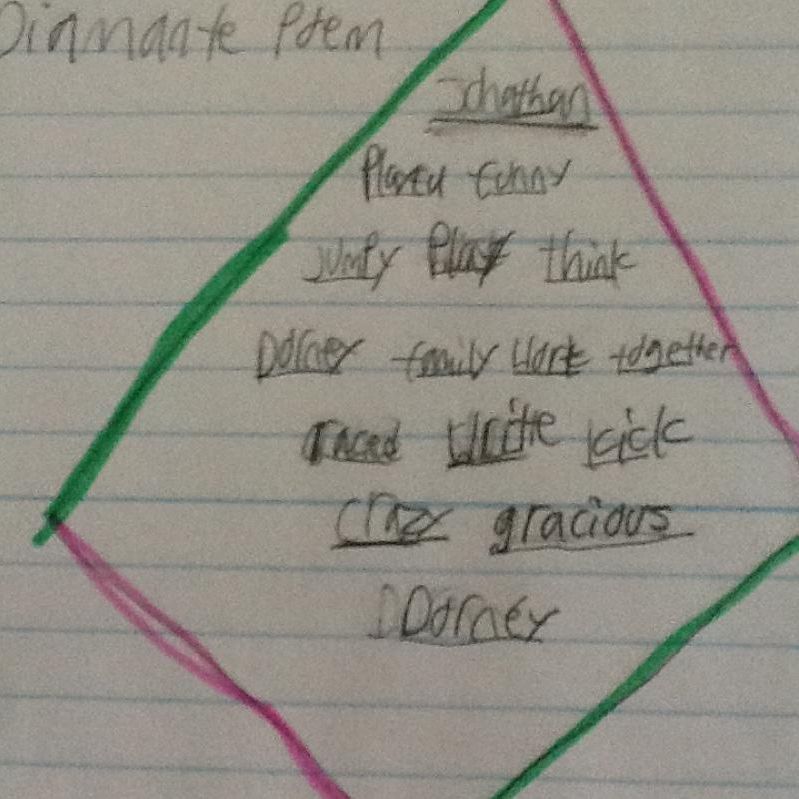 Diamante Poem
Jonathan
funny
Jumpy Play think
Dorney family Work together
raced Write kick
crazy gracious
Dorney